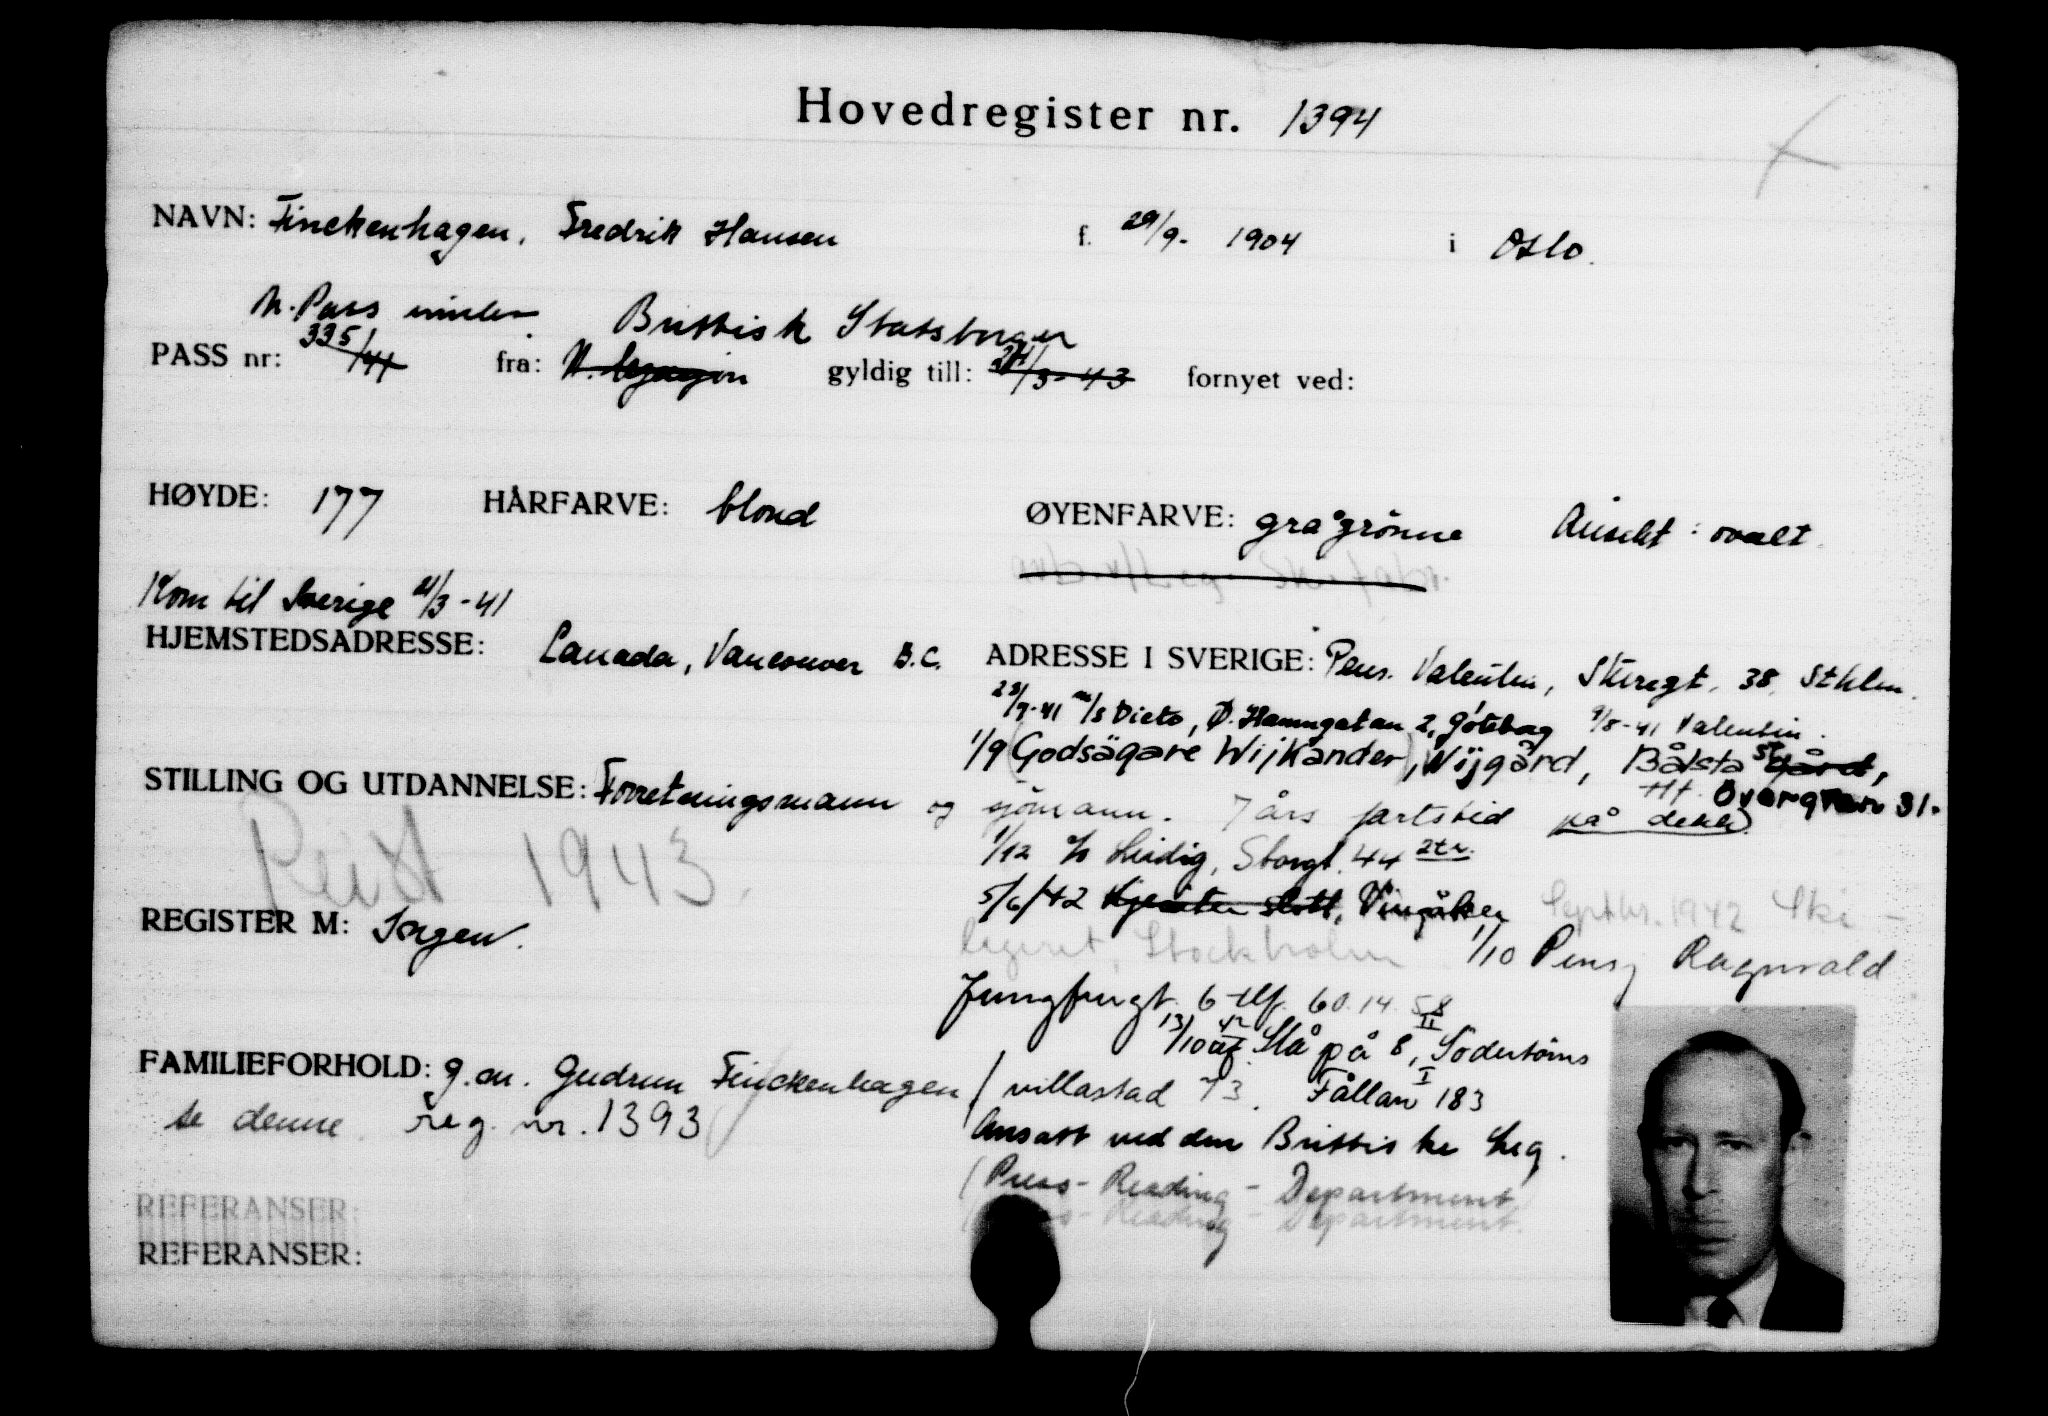 Hovedregister nr. 1394
NAVN: Finckenhagen, Fredrik Hansen f. 29/9- 1904 i Oslo.
N. Pass Brittisk Statsborger
PASS nr: 335/41 fra: N. legasjon gyldig till: 24/3-43 fornyet ved:
HØYDE: 177 HÅRFARVE: blond ØYENFARVE: grågrønne Ansikt: ovalt.
Kom til Sverige 21/3-41
HJEMSTEDSADRESSE: Canada, Vancouver B.C. ADRESSE I SVERIGE: Pens. Valentin, Sturegt. 38, Sthlm.
/7-41 m/s Dicto, Ø. Hamngatan 2, Göteborg 9/8-41 Valentin.
1/9 (Godsägare Wijkander), Wijgård, Bålsta
STILLING OG UTDANNELSE: Forretningsmann og sjömann. 7 års fartstid på dekk. tlf. Övergran 31.
1/12 Storgt. 44 2tr.
Reist 1943.
5/6/42 Kjesäter slott, Vingåker Septbr. 1942 Ski-
REGISTER M: Ingen. legeret, Stockholm 1/10 Pensj Ragnvald
Jungfrugt. 6 tlf. 60.14.58
13/10 42 Slå på 8, II Södertörns
FAMILIEFORHOLD: g.m. Gudrun Finckenhagen villastad 73. Fållan I 183
se denne reg. nr. 1393
Ansatt ved den Brittiske Leg.
(Press-Reading-Department)
REFERANSER:
REFERANSER: